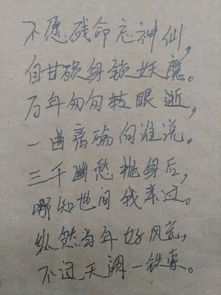 不愿残命充神仙，
自甘碎身锁妖魔。
万年匆匆转眼逝，
一曲离殇向谁说。
三千幽愁抛身后，
哪知世间我来过。
纵然当年好风流，
不过天涯一